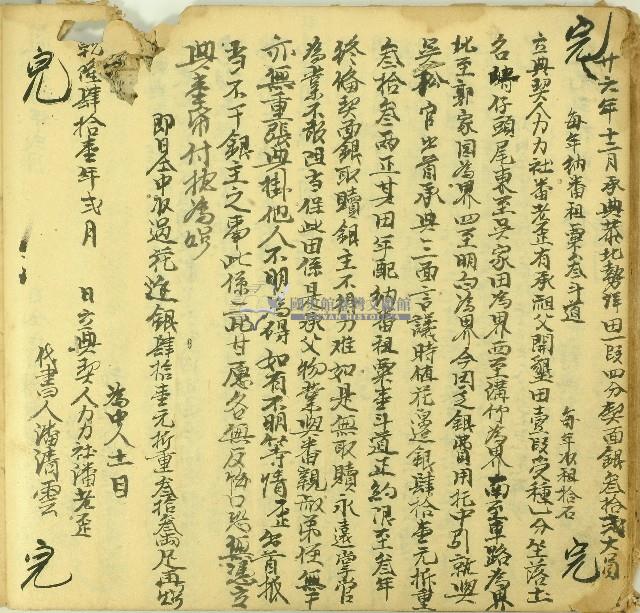 完
廿六年十二月承典恭北勢洋田一段四分契面銀叁拾弍大員
每年納番租粟叁斗道
每年収租拾石
完
立典契人力力社番老歪有承祖父開墾田壹段受種一分坐落土
名埔仔頭尾東至吳家田為界西至溝竹為界南至車路為界
北至郭家田為界四至明白為界今因乏銀費用托中引就與
吳松官出首承典三面言議時值花邊銀肆拾壹元折重
叁拾叁両正其田年配納番租粟壹斗道正約限至叁年
終備契面銀取贖銀主不得刁难如是無取贖永遠掌管
為業不敢阻當保此田係是承父物業與番親叔弟侄無干
亦無重張典掛他人不明為碍如有不明等情歪出首抵
当不干銀主之事此係二比甘愿各無反悔口恐無憑立
典壹紙付执為炤
即日仝中収過花边銀肆拾壹元折重叁拾叁両足再炤
為中人士目
乾隆肆拾壹年弍月 日立典契人力力社潘老歪
代書人潘清雲
完
完
國史館臺灣文獻館
TAIWAN HISTORICA